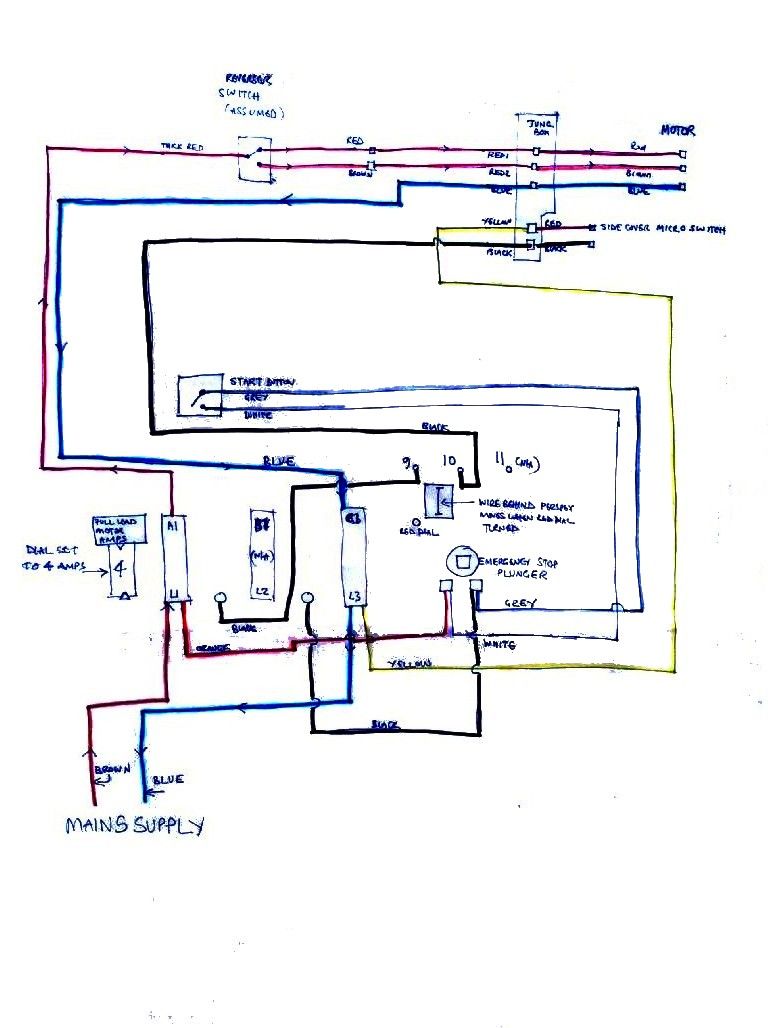 REVERSER
SWITCH
(ASSUMED)
JUNC
BOX
MOTOR
THICK RED
RED
RED1
RED
BROWN
RED2
BROWN
BLUE
BLUE
YELLOW
RED
SIDE COVER MICRO SWITCH
BLACK
BLACK
START BUTTON
GREY
WHITE
BLACK
BLUE
9
10
11
(N/A)
WIRE BEHIND PERSPEX
MOVES WHEN RED DIAL
TURNED
RED DIAL
FULL LOAD
MOTOR
AMPS
A1
(N/A)
DIAL SET
TO 4 AMPS
4
L1
L2
L3
EMERGENCY STOP
PLUNGER
GREY
BLACK
ORANGE
WHITE
YELLOW
BLACK
BROWN
BLUE
MAINS SUPPLY